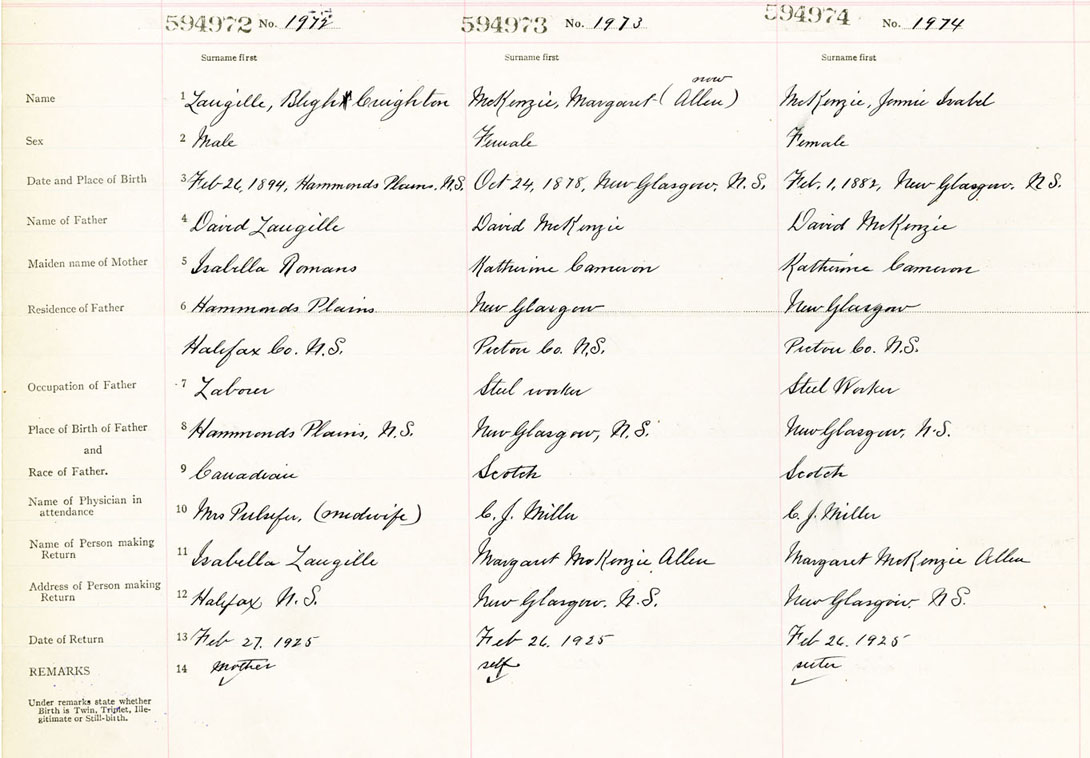 594972 No. 1972 594973 No. 1973 594974 No. 1974
Surname first Surname first Surname first
now
Name 1 Langille, Bligh Creighton McKenzie, Margaret (Allen) McKenzie, Jennie Isabel
Sex 2 Male Female Female
Date and Place of Birth 3 Feb 26, 1894, Hammonds Plains, N.S. Oct 24, 1878, New Glasgow, N.S. Feb. 1, 1882, New Glasgow. N.S.
Name of Father 4 David Langille David McKenzie David McKenzie
Maiden name of Mother 5 Isabella Romans Katherine Cameron Katherine Cameron
Residence of Father 6 Hammonds Plains New Glasgow New Glasgow
Halifax Co. N.S. Pictou Co. N.S. Pictou Co. N.S.
Occupation of Father 7 Labourer Steel worker Steel Worker
Place of Birth of Father 8 Hammonds Plains, N.S. New Glasgow, N.S. New Glasgow, N.S.
and
Race of Father. 9 Canadian Scotch Scotch
Name of Physician in
attendance 10 Mrs Pulsifer, (midwife) C. J. Miller C. J. Miller
Name of Person making
Return 11 Isabella Langille Margaret McKenzie Allen Margaret McKenzie Allen
Address of Person making
Return 12 Halifax N.S. New Glasgow. N.S. New Glasgow. N.S.
Date of Return 13 Feb 27, 1925 Feb 26, 1925 Feb 26, 1925
REMARKS 14 Mother self sister
Under remarks state whether
Birth is Twin, Triplet, Ille-
gitimate or Still-birth.